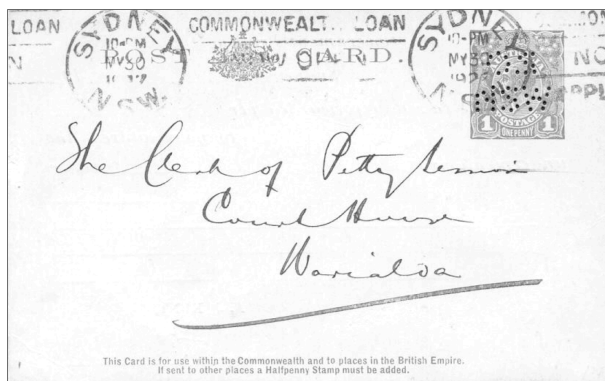 LOAN COMMONWEALT. LOAN
SYDNEY
10-PM
MY30
N.S.W.
POST CARD.
SYDNEY
10-PM
MY30
N.S.W.
POSTAGE
1 ONE PENNY 1
The Clerk of Petty Session
Court House
Warialda
This Card is for use within the Commonwealth and to places in the British Empire.
If sent to other places a Halfpenny Stamp must be added.